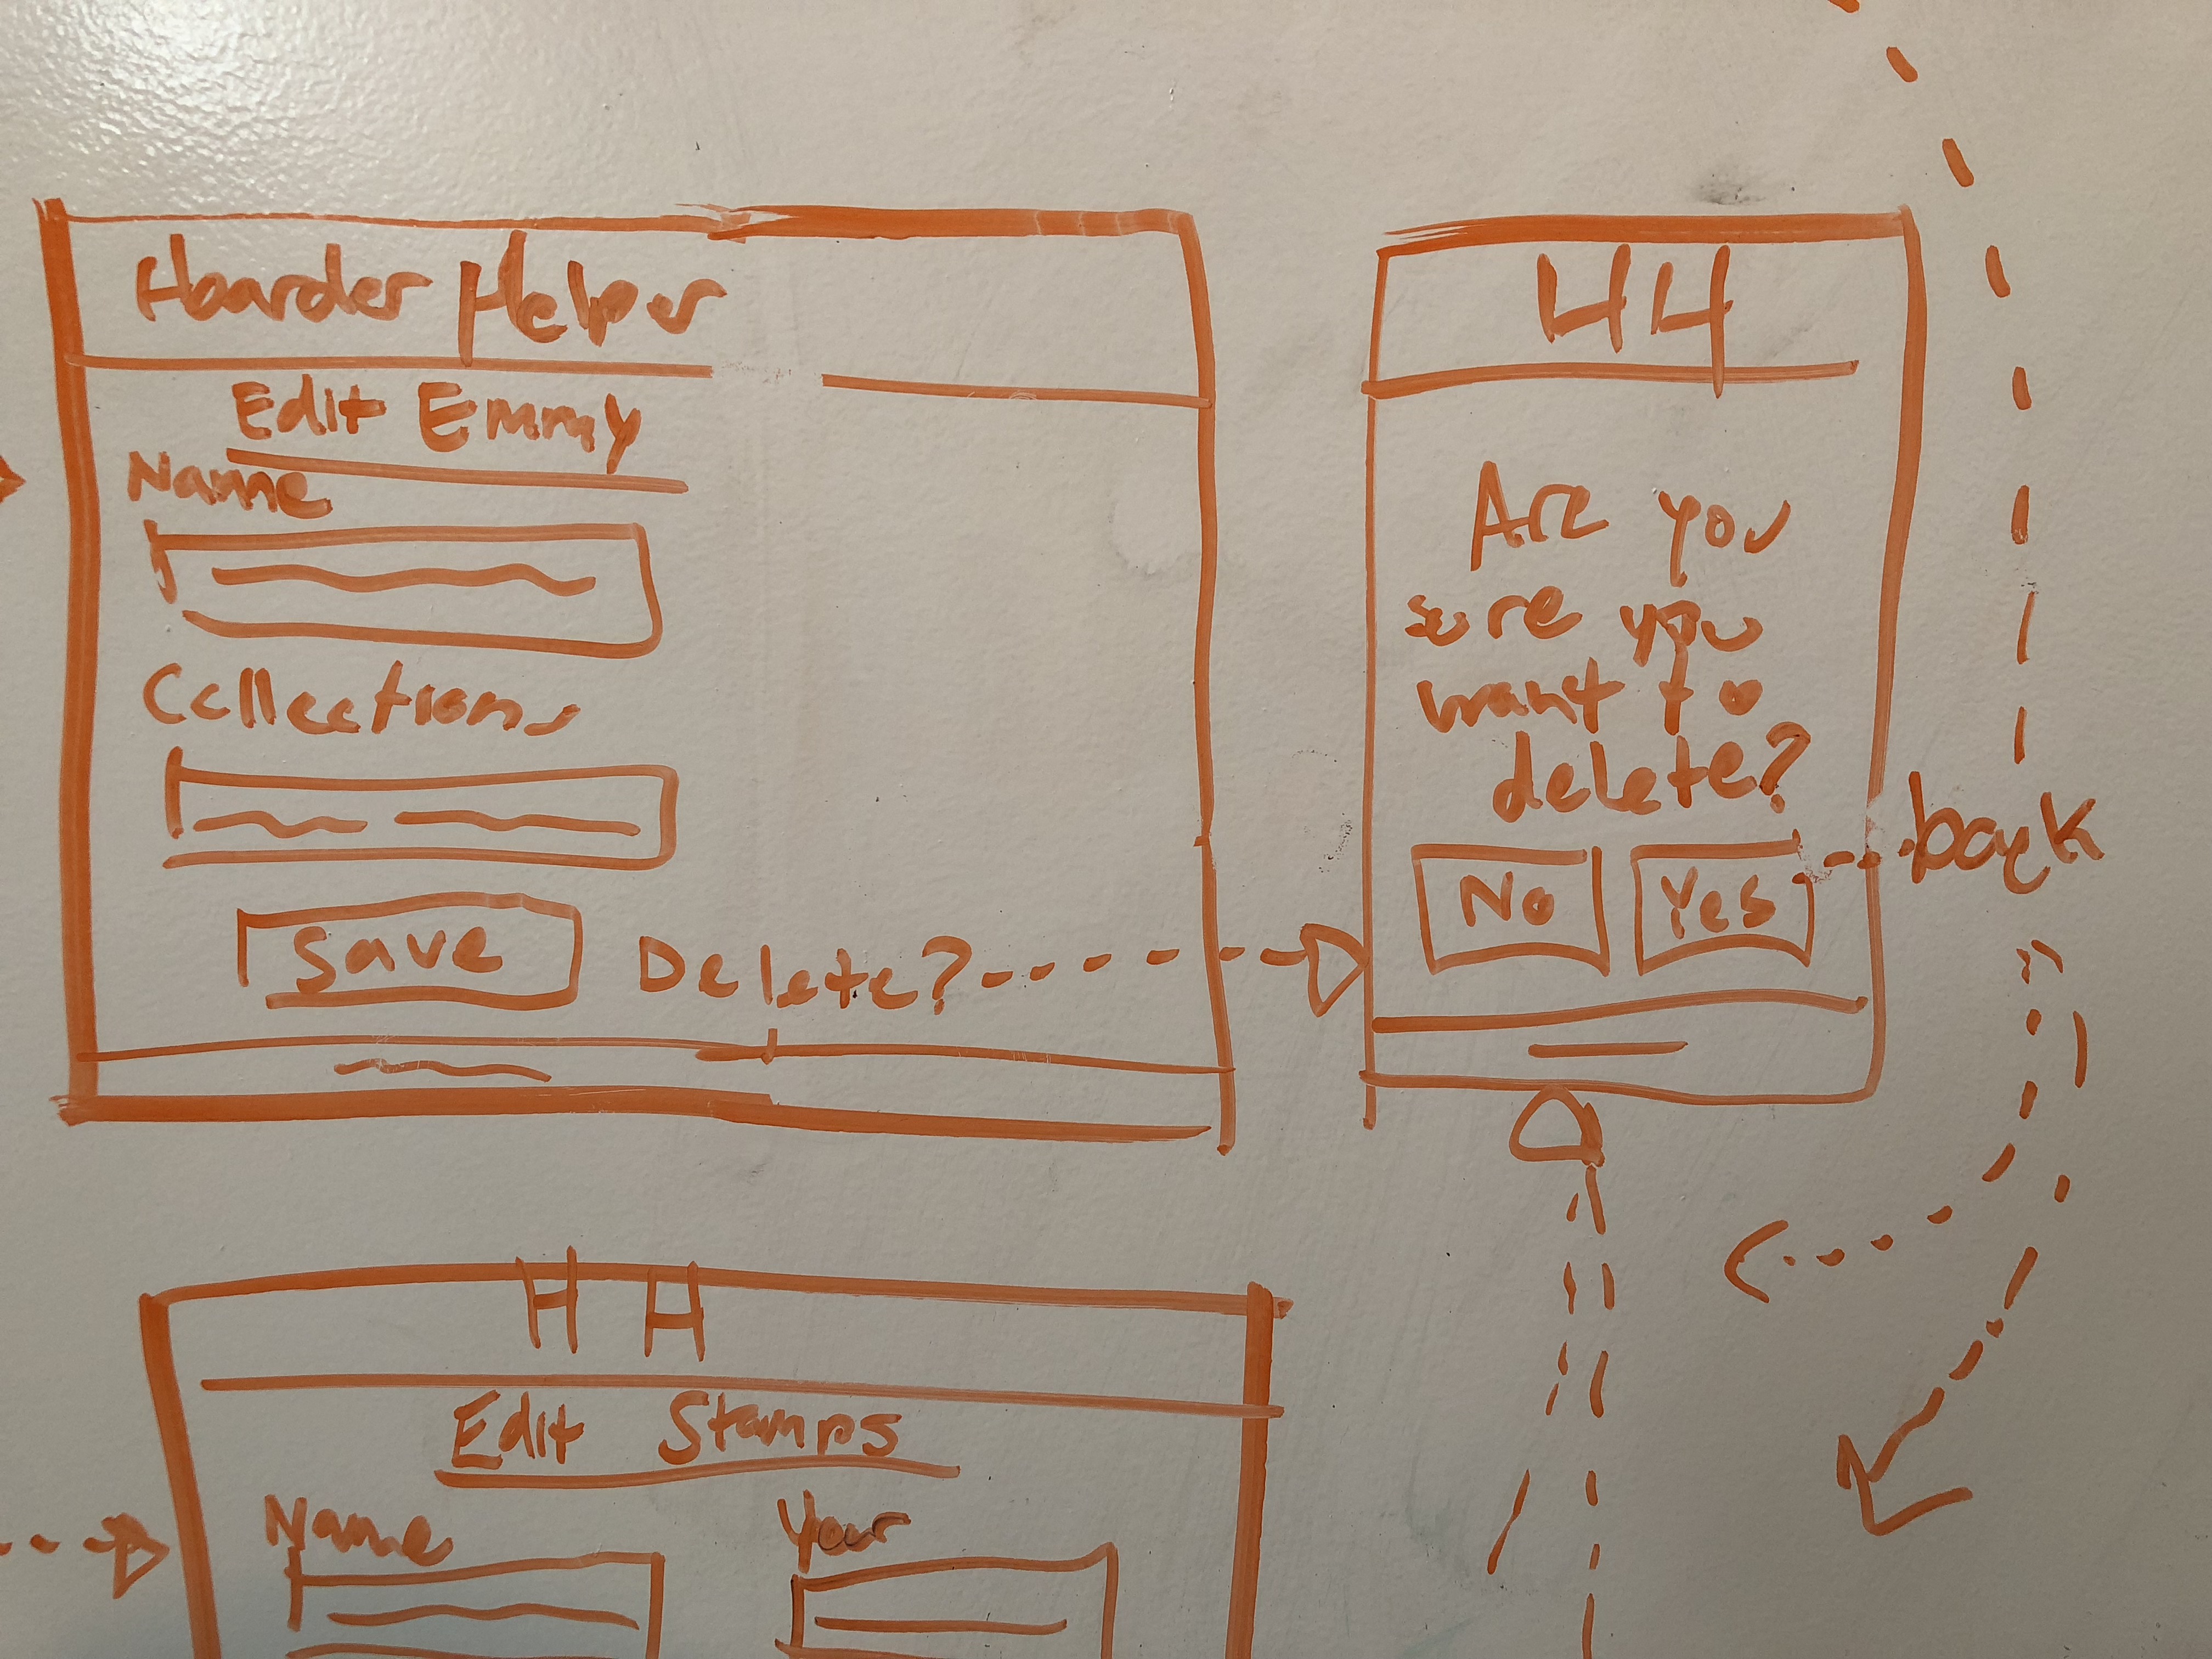 Hoarder Helper
Edit Emmy
Name
Collections
Save Delete?
HH
Are you
sure you
want to
delete?
No Yes
back
HH
Edit Stamps
Name Year